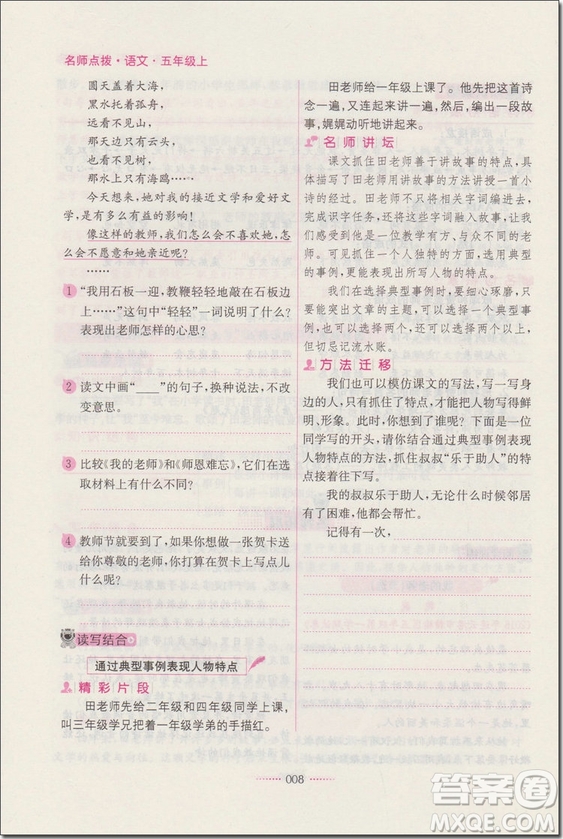 名师点拨·语文·五年级上
圆天盖着大海，
黑水托着孤舟，
远看不见山，
那天边只有云头，
也看不见树，
那水上只有海鸥……
今天想来，她对我的接近文学和爱好文
学，是有多么有益的影响！
像这样的教师，我们怎么会不喜欢她，怎
么会不愿意和她亲近呢？
……
1 “我用石板一迎，教鞭轻轻地敲在石板边
上……”这句中“轻轻”一词说明了什么？
表现出老师怎样的心思？
2 读文中画“____”的句子，换种说法，不改
变意思。
3 比较《我的老师》和《师恩难忘》，它们在选
取材料上有什么不同？
4 教师节就要到了，如果你想做一张贺卡送
给你尊敬的老师，你打算在贺卡上写点儿
什么呢？
读写结合
通过典型事例表现人物特点
精彩片段
田老师先给二年级和四年级同学上课，
叫三年级学兄把着一年级学弟的手描红。
田老师给一年级上课了。他先把这首诗
念一遍，又连起来讲一遍，然后，编出一段故
事，娓娓动听地讲起来。
名师讲坛
课文抓住田老师善于讲故事的特点，具
体描写了田老师用讲故事的方法讲授一首小
诗的经过。他创造性地将相关字词编进故事，
完成识字任务，还将这些字词融入故事，使故
事生动有趣。他是一位教学有方，与众不同的
老师。可见抓住一个人独特的方面，选用典型
的事例，更能表现出所写人物的特点。
我们在选择典型事例时，要细心琢磨，只
要能突出文章的主题，可以选择一个典型事
例，也可以选择两个，还可以选择两个以上，
但切忌记流水账。
方法迁移
我们也可以模仿课文的写法，写一写身
边的人，只要抓住了特点，就能把人物写得鲜
明、形象。此时，你想到了谁呢？下面是一位
同学写的开头，请你结合通过典型事例表现
人物特点的方法，抓住叔叔“乐于助人”的特
点接着往下写。
我的叔叔乐于助人，无论什么时候邻居
有了困难，他都会帮忙。
记得有一次，
008
答案圈